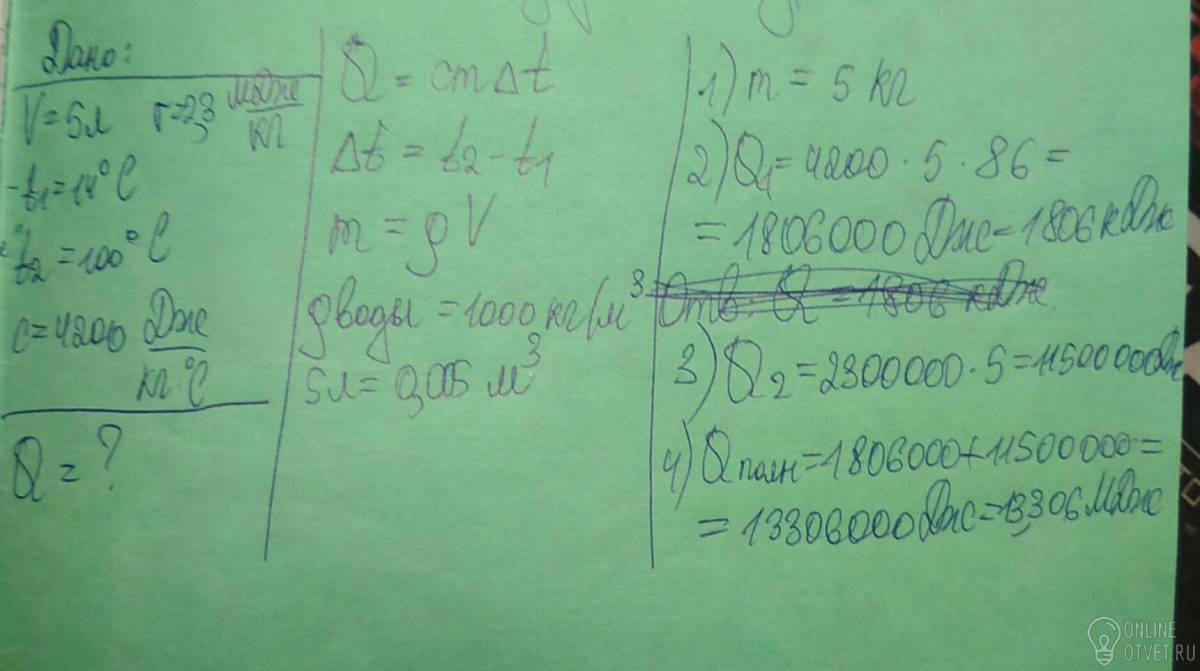 Дано:
V=5л r=2,3 МДж/кг
t₁=14°C
t₂=100°C
c=4200 Дж/кг·°C
Q=?
Q=cmΔt
Δt=t₂-t₁
m=ρV
ρводы=1000кг/м³
5л=0,005м³
1) m=5кг
2) Q₁=4200·5·86=
=1806000Дж=1806кДж
Отв: Q=1806кДж.
3) Q₂=2300000·5=11500000Дж
4) Qполн=1806000+11500000=
=13306000Дж=13,306МДж
ONLINE
OTVET.RU